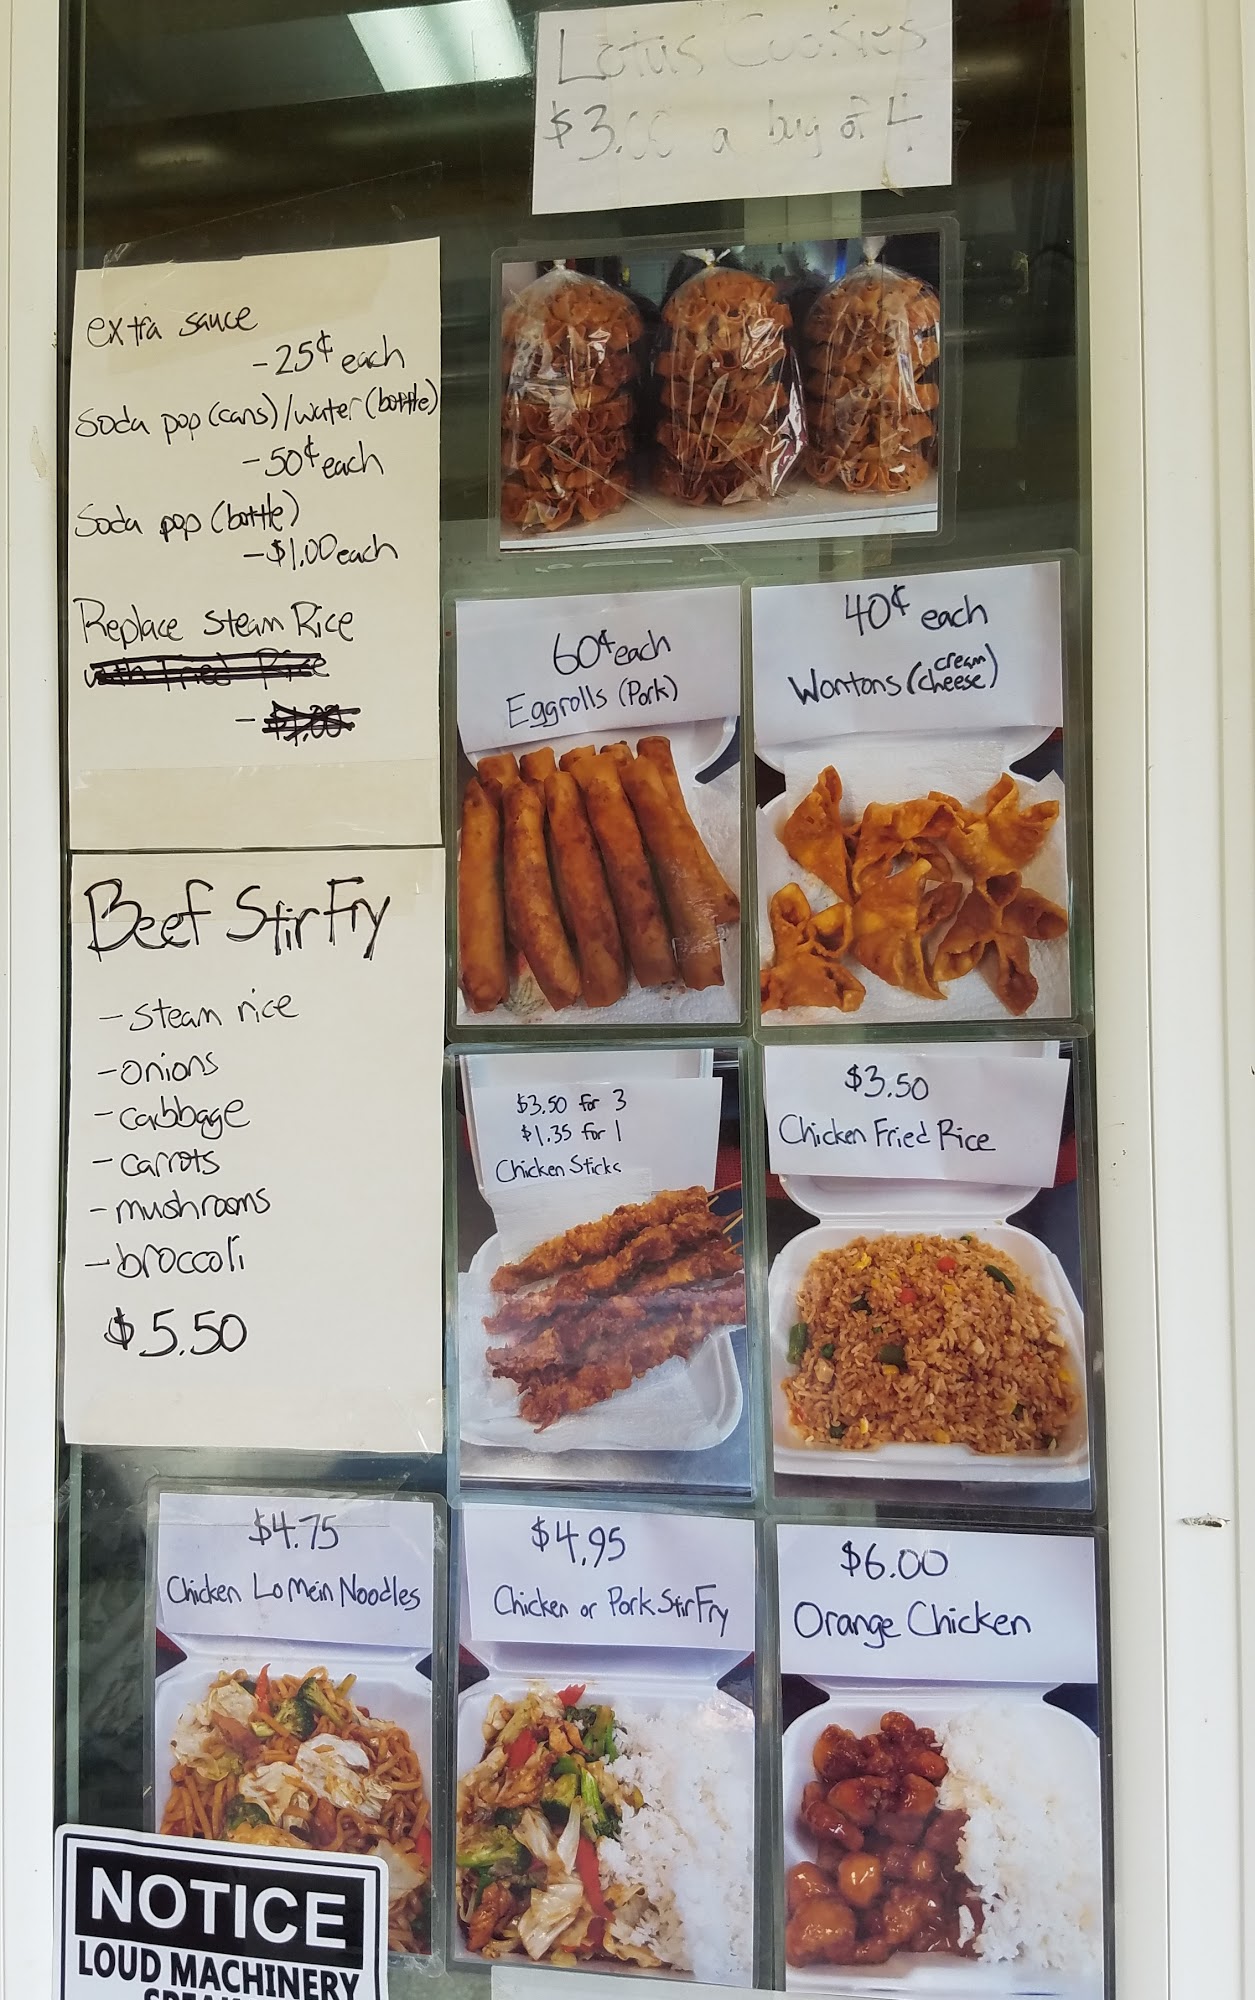 Lotus Cookies
$3.00 a bag of
extra sauce
- 25¢ each
Soda pop (cans)/water (bottle)
- 50¢ each
Soda pop (bottle)
- $1.00 each
Replace Steam Rice
with Fried Rice
- $1.00
60¢ each
Eggrolls (Pork)
40¢ each
Wontons (cream
cheese)
Beef Stir Fry
- steam rice
- onions
- cabbage
- carrots
- mushrooms
- broccoli
$5.50
$3.50 for 3
$1.35 for 1
Chicken Sticks
$3.50
Chicken Fried Rice
$4.75
Chicken Lo Mein Noodles
$4.95
Chicken or Pork Stir Fry
$6.00
Orange Chicken
NOTICE
LOUD MACHINERY